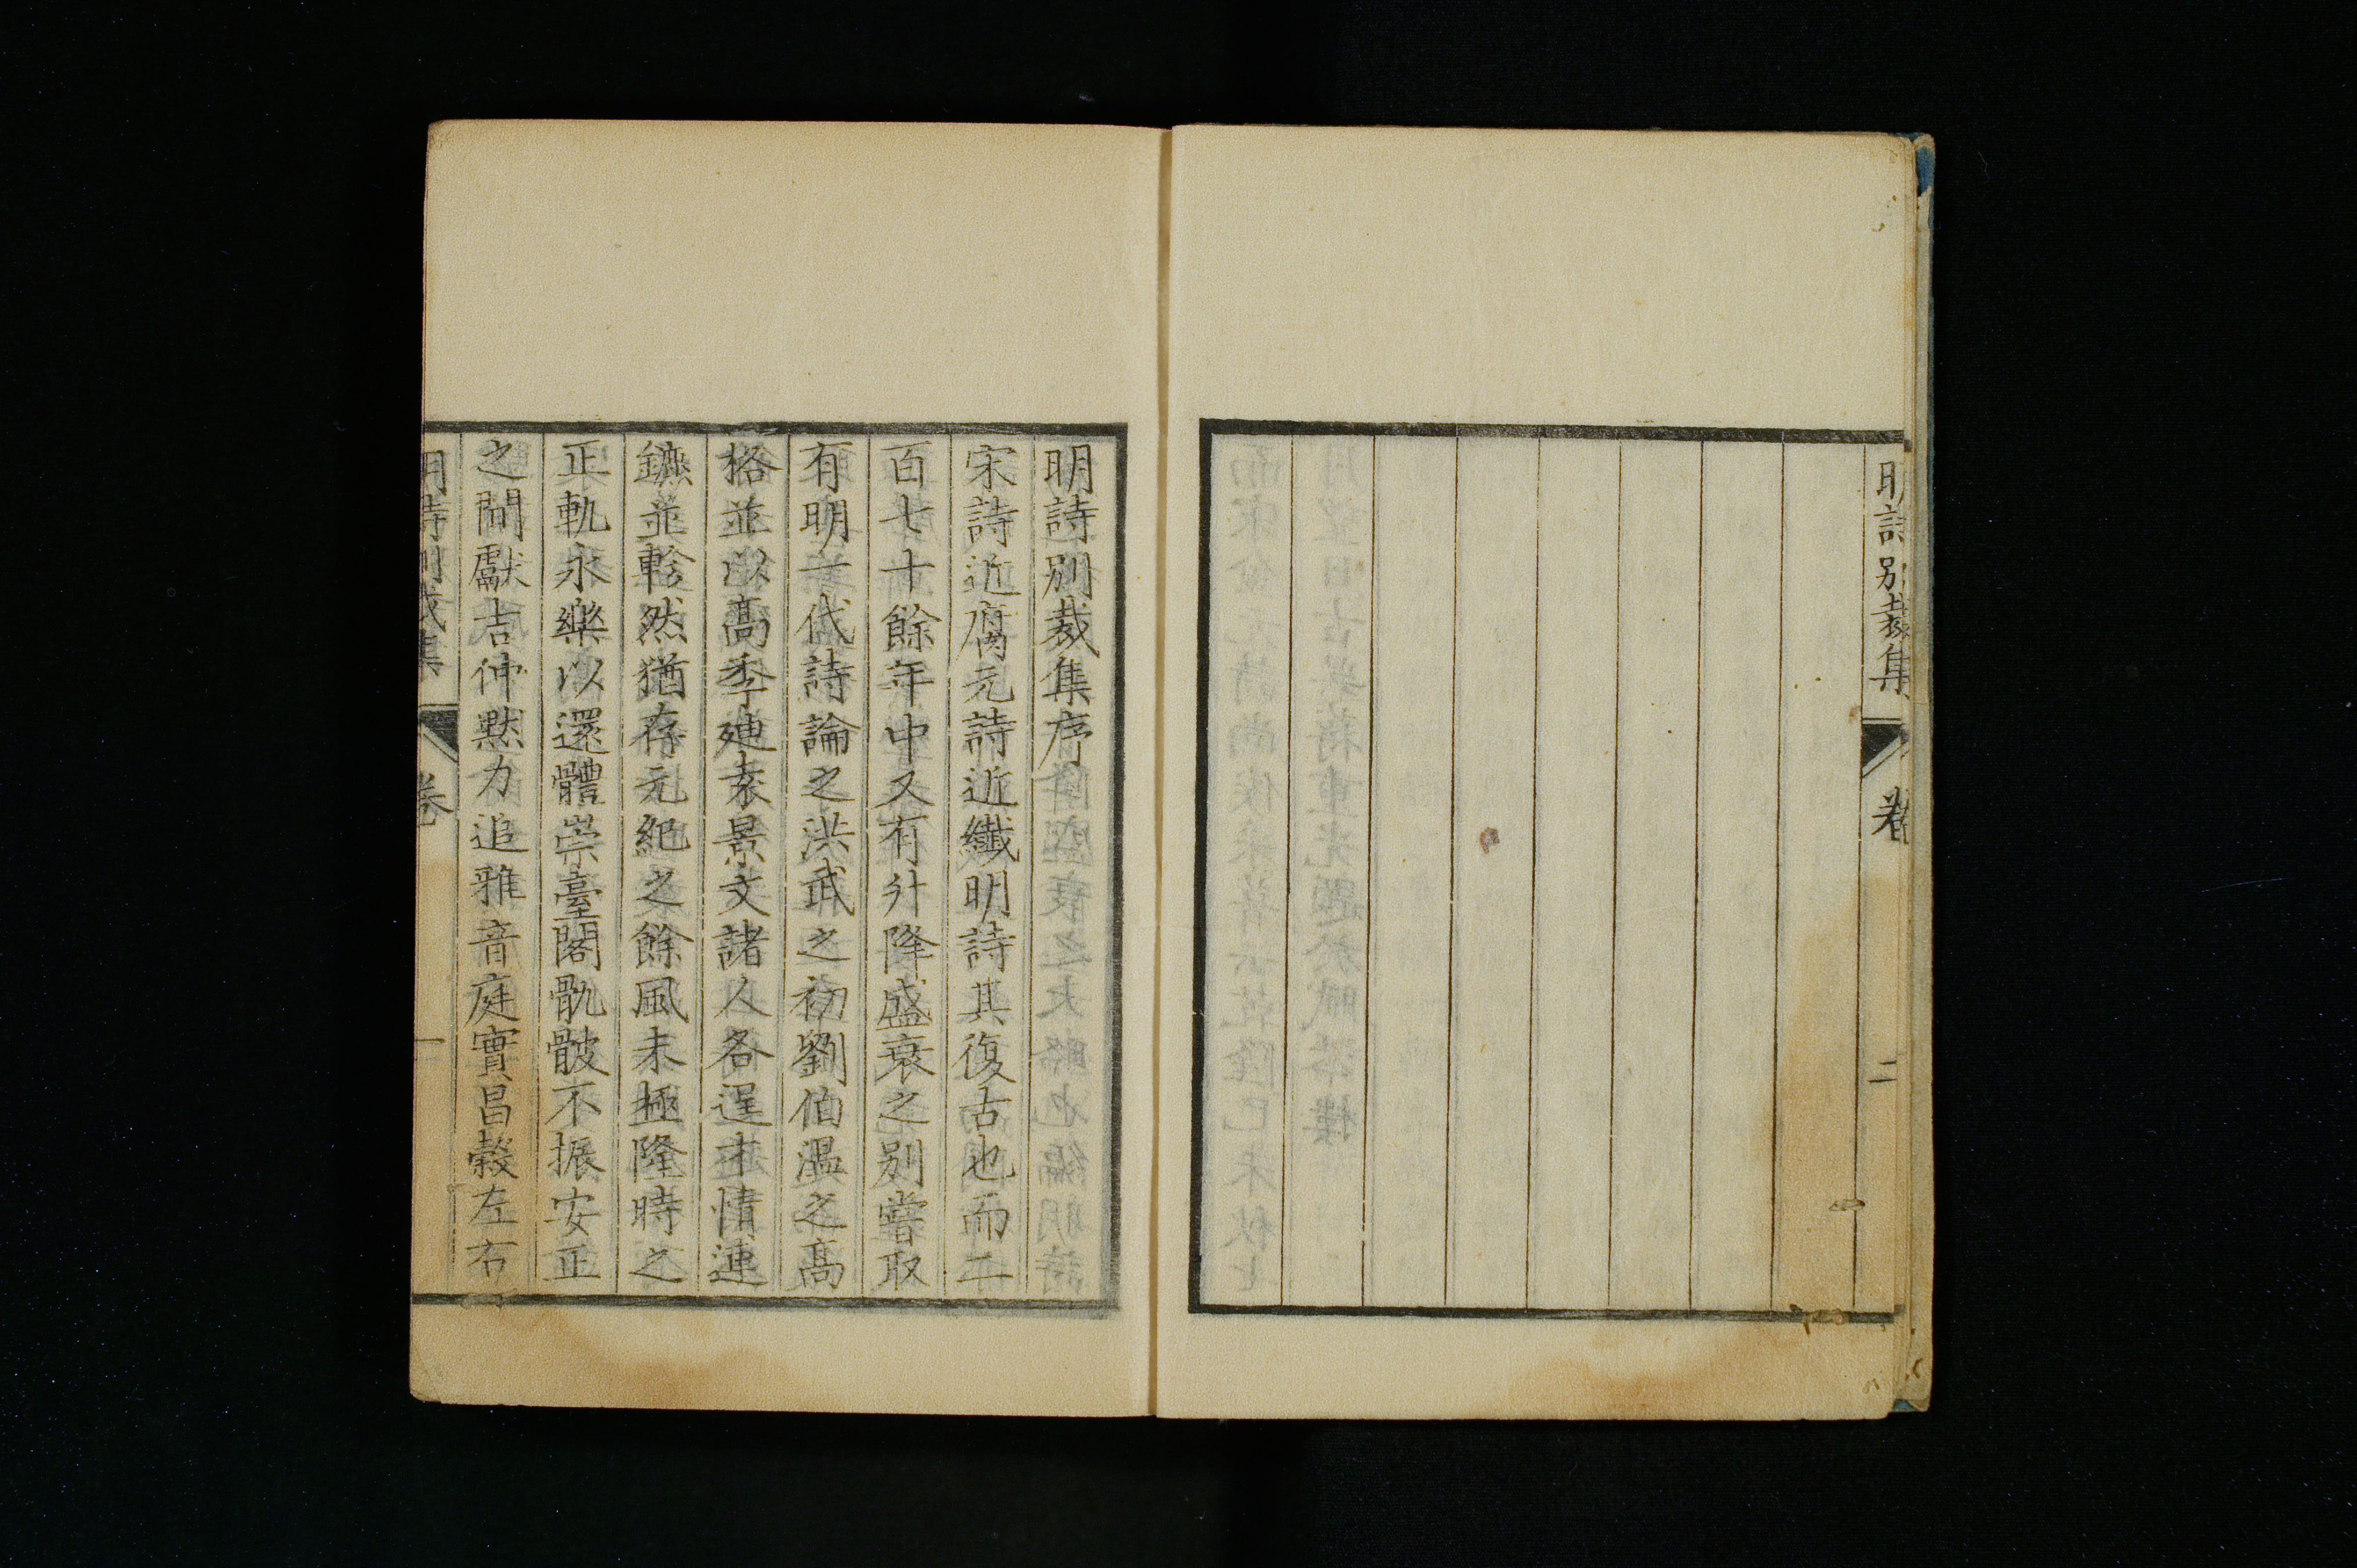 明詩別裁集
卷
二
明詩別裁集序
宋詩近腐元詩近纖明詩其復古也而二
百七十餘年中又有升降盛衰之別嘗取
有明一代詩論之洪武之初劉伯溫之高
格並以高季迪袁景文諸人各逞才情連
鑣並軫然猶存元紀之餘風未極隆時之
正軌永樂以還體崇臺閣骫骳不振安正
之間獻吉仲默力追雅音庭實昌穀左右
明詩別裁集
卷
一